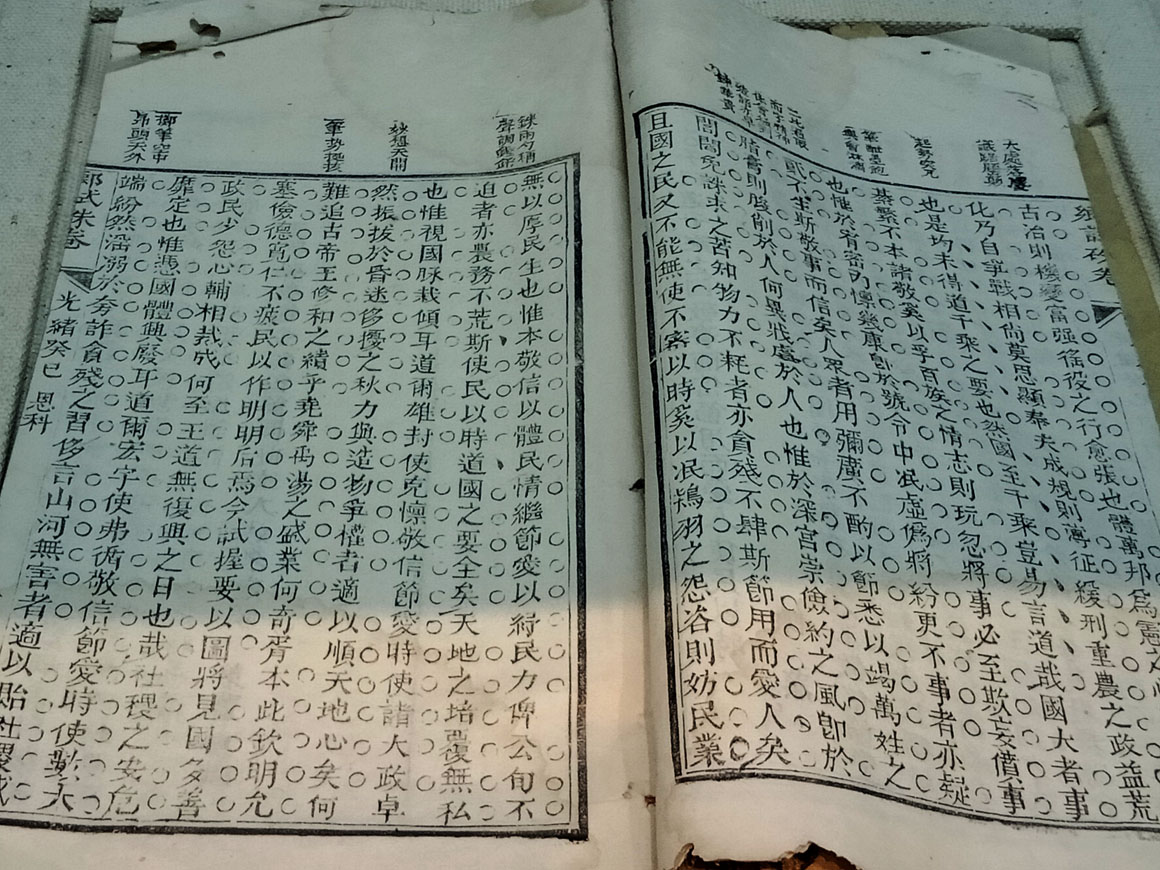 大處落墨
議論歷朝
起勢突兀
筆酣墨飽
興會淋漓
鄉試硃卷
古治則機變富强徭役之行愈張也體萬邦爲憲之心
化乃自爭戰相尚莫思顯奉夫成規則薄征緩刑重農之政益荒
也是均未得道千乘之要也然國至千乘豈易言道哉國大者事
綦繁不本諸敬奚以孚百族之情志則玩忽將事必至欺妄僨事
也惟於宥密內懍幾康卽於號令中泯虛僞將紛更不事者亦疑
貳不生斯敬事而信矣人眾者用彌廣不酌以節悉以竭萬姓之
脂膏則朘削於人何異戕虐於人也惟於深宮崇儉約之風卽於
閭閻免誅求之苦知物力不耗者亦貪殘不肆斯節用而愛人矣
且國之民又不能無使不審以時奚以泯鴇羽之怨咨則妨民業
銖兩勻稱
聲調鏗鏘
妙想天開
筆勢撐拔
擲筆空中
昂頭天外
無以厚民生也惟本敬信以體民情繼節愛以紓民力俾公旬不
迫者亦農務不荒斯使民以時道國之要全矣天地之培覆無私
也惟視國脉栽傾耳道爾雄封使克懍敬信節愛時使諸大政卓
然振拔於昏迷侈擾之秋力與造物爭權者適以順天地心矣何
難追古帝王修和之績乎堯舜禹湯之盛業何奇胥本此欽明允
塞儉德寬仁不疲民以作明明后焉今試握要以圖將見國多善
政民少怨心輔相裁成何至王道無復興之日也哉社稷之安危
靡定也惟憑國體興廢耳道爾宏宇使弗循敬信節愛時使數大
端紛然滛溺於夸詐貪殘之習侈言山河無害者適以貽社稷戚
鄉試朱卷 光緒癸巳 恩科